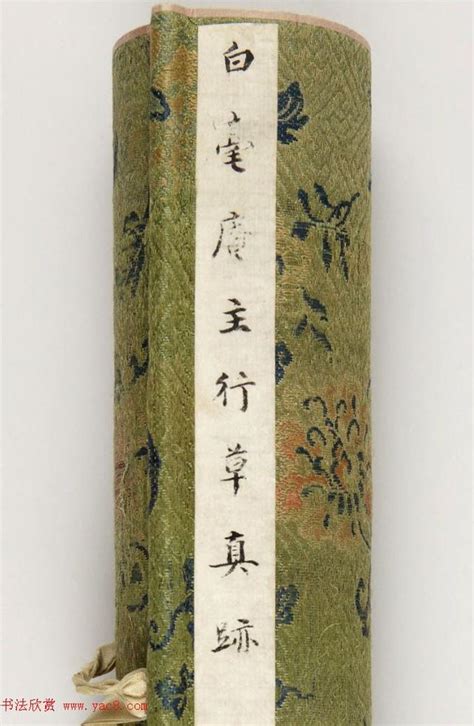 白毫庵主行草真跡
书法欣赏 www.yac8.com